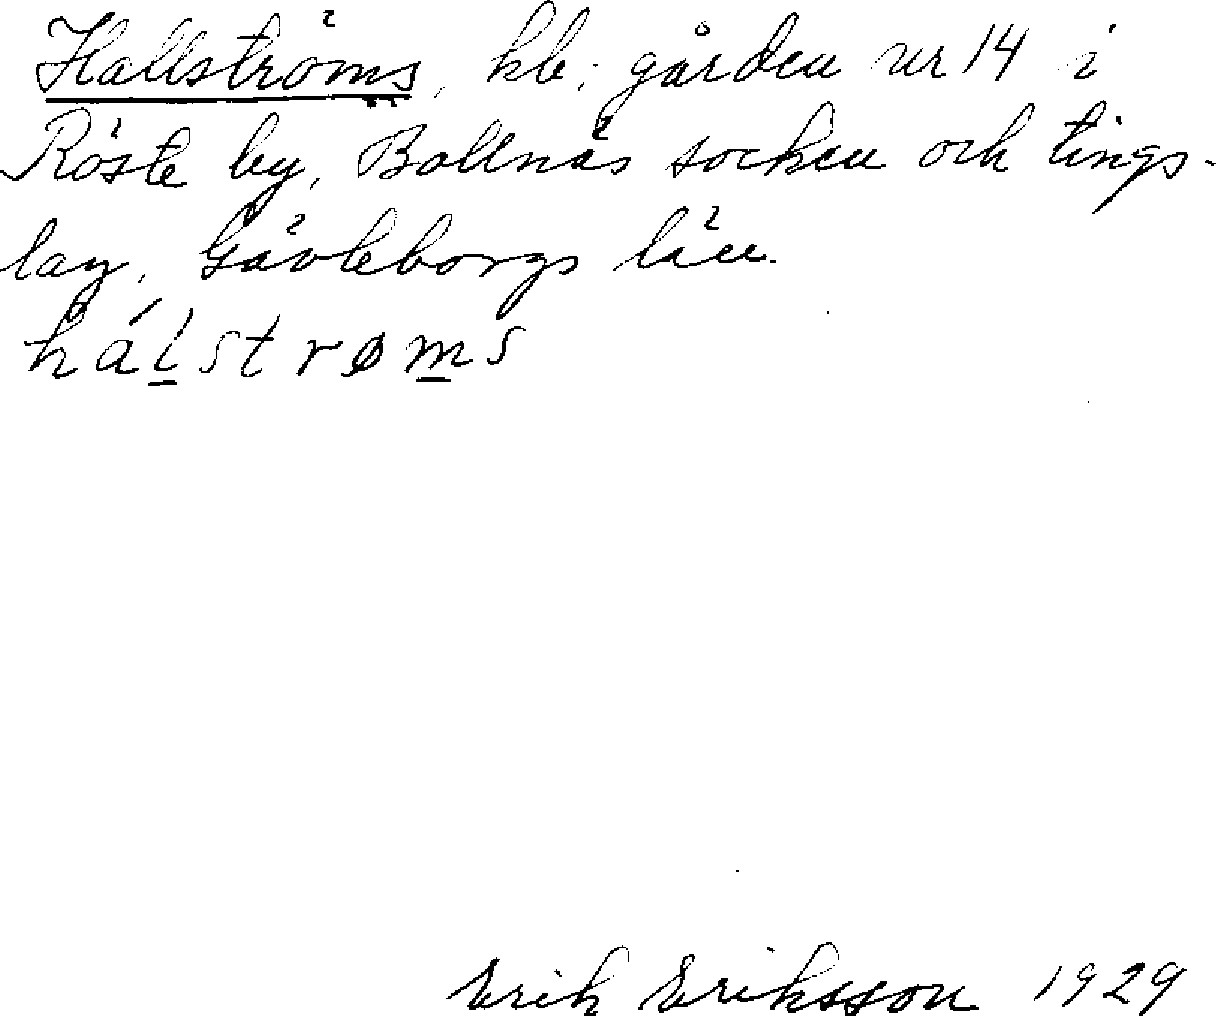 Hallströms, kb; gården nr 14 i
Röste by, Bollnäs socken och tings-
lag, Gävleborgs län.
hálstrøms
Erik Eriksson 1929